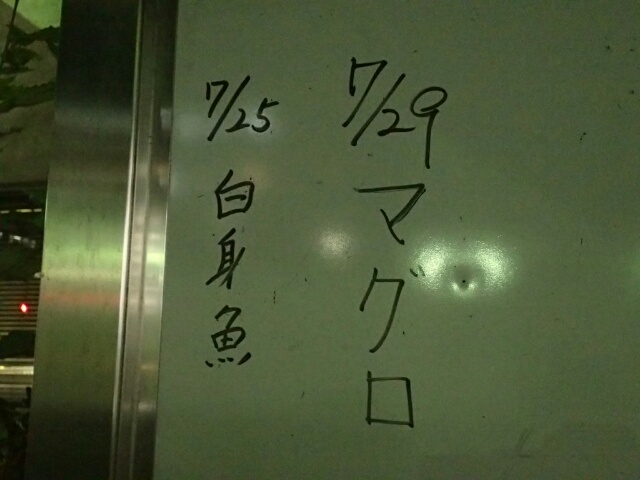 7/29
マグロ
7/25
白身魚